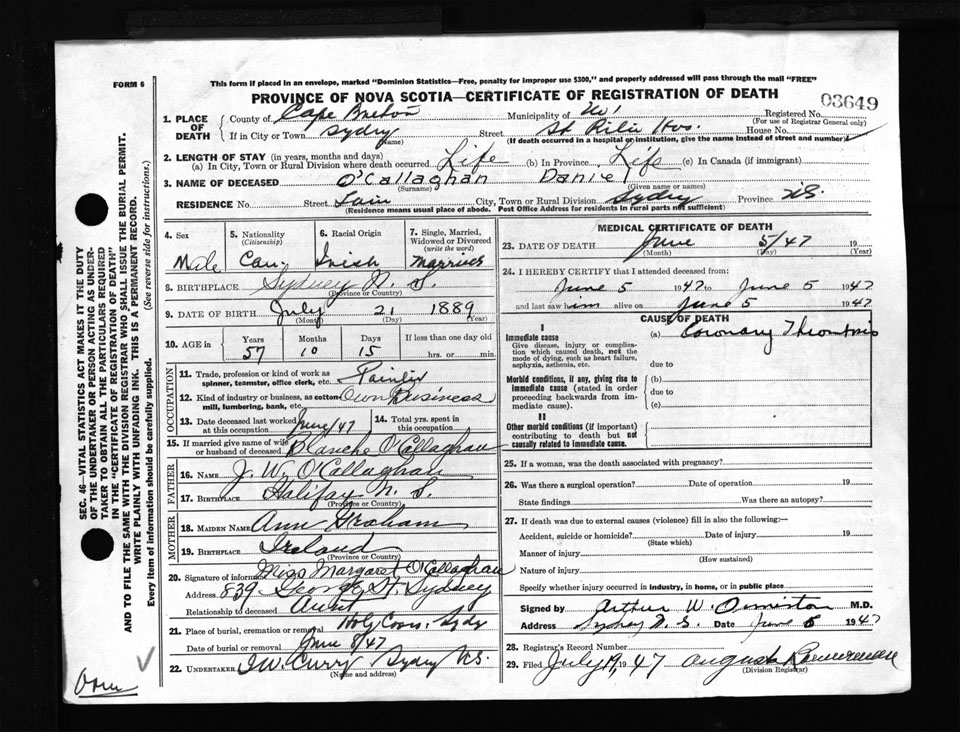 FORM 6
This form if placed in an envelope, marked "Dominion Statistics—Free, penalty for improper use $300," and properly addressed will pass through the mail "FREE"
PROVINCE OF NOVA SCOTIA—CERTIFICATE OF REGISTRATION OF DEATH
03649
1. PLACE OF DEATH
County of Cape Breton Municipality of Registered No.
(For use of Registrar General only)
If in City or Town Sydney Street St Rita Hos. House No.
(If death occurred in a hospital or institution, give the name instead of street and number)
2. LENGTH OF STAY (in years, months and days)
(a) In City, Town or Rural Division where death occurred Life (b) In Province Life (c) In Canada (if immigrant)
3. NAME OF DECEASED O'Callaghan Daniel
(Surname) (Given name or names)
RESIDENCE No. Street City, Town or Rural Division Sydney Province N.S.
(Residence means usual place of abode. Post Office Address for residents in rural parts not sufficient)
4. Sex Male
5. Nationality (Citizenship) Can.
6. Racial Origin Irish
7. Single, Married, Widowed or Divorced (write the word) Married
8. BIRTHPLACE Sydney N. S.
(Province or Country)
9. DATE OF BIRTH July 21 1889
(Month) (Day) (Year)
10. AGE in Years Months Days If less than one day old
57 10 15 hrs. or min.
OCCUPATION
11. Trade, profession or kind of work as spinner, teamster, office clerk, etc. Painter
12. Kind of industry or business, as cotton mill, lumbering, bank, etc. Own Business
13. Date deceased last worked at this occupation June/47
14. Total yrs. spent in this occupation
15. If married give name of wife or husband of deceased Blanche O'Callaghan
FATHER
16. NAME J. W. O'Callaghan
17. BIRTHPLACE Halifax N. S.
(Province or Country)
MOTHER
18. MAIDEN NAME Ann Graham
19. BIRTHPLACE Ireland
(Province or Country)
20. Signature of informant Miss Margaret O'Callaghan
Address 839 George St. Sydney
Relationship to deceased Aunt
21. Place of burial, cremation or removal Holy Cross, Sydney
Date of burial or removal June 8/47
22. UNDERTAKER J W. Curry Sydney N.S.
(Name and address)
MEDICAL CERTIFICATE OF DEATH
23. DATE OF DEATH June 5/47 19
(Month) (Day) (Year)
24. I HEREBY CERTIFY that I attended deceased from:
June 5 1947 to June 5 1947
and last saw him alive on June 5 1947
CAUSE OF DEATH
I
Immediate cause
Give disease, injury or complication which caused death, not the mode of dying, such as heart failure, asphyxia, asthenia, etc.
(a) Coronary Thrombosis
due to
Morbid conditions, if any, giving rise to immediate cause (stated in order proceeding backwards from immediate cause).
(b)
due to
(c)
II
Other morbid conditions (if important) contributing to death but not causally related to immediate cause.
25. If a woman, was the death associated with pregnancy?
26. Was there a surgical operation? Date of operation 19
State findings Was there an autopsy?
27. If death was due to external causes (violence) fill in also the following:—
Accident, suicide or homicide? Date of injury 19
(State which)
Manner of injury
(How sustained)
Nature of injury
Specify whether injury occurred in industry, in home, or in public place
Signed by Arthur W. Ormiston M.D.
Address Sydney N. S. Date June 5 1947
28. Registrar's Record Number
29. Filed July 19, 1947
(Division Registrar)
SEC. 46—VITAL STATISTICS ACT MAKES IT THE DUTY
OF THE UNDERTAKER OR PERSON ACTING AS UNDER-
TAKER TO OBTAIN ALL THE PARTICULARS REQUIRED
IN THE "CERTIFICATE OF REGISTRATION OF DEATH"
AND TO FILE THE SAME WITH THE DIVISION REGISTRAR WHO SHALL ISSUE THE BURIAL PERMIT.
WRITE PLAINLY WITH UNFADING INK. THIS IS A PERMANENT RECORD.
Every item of information should be carefully supplied. (See reverse side for instructions.)